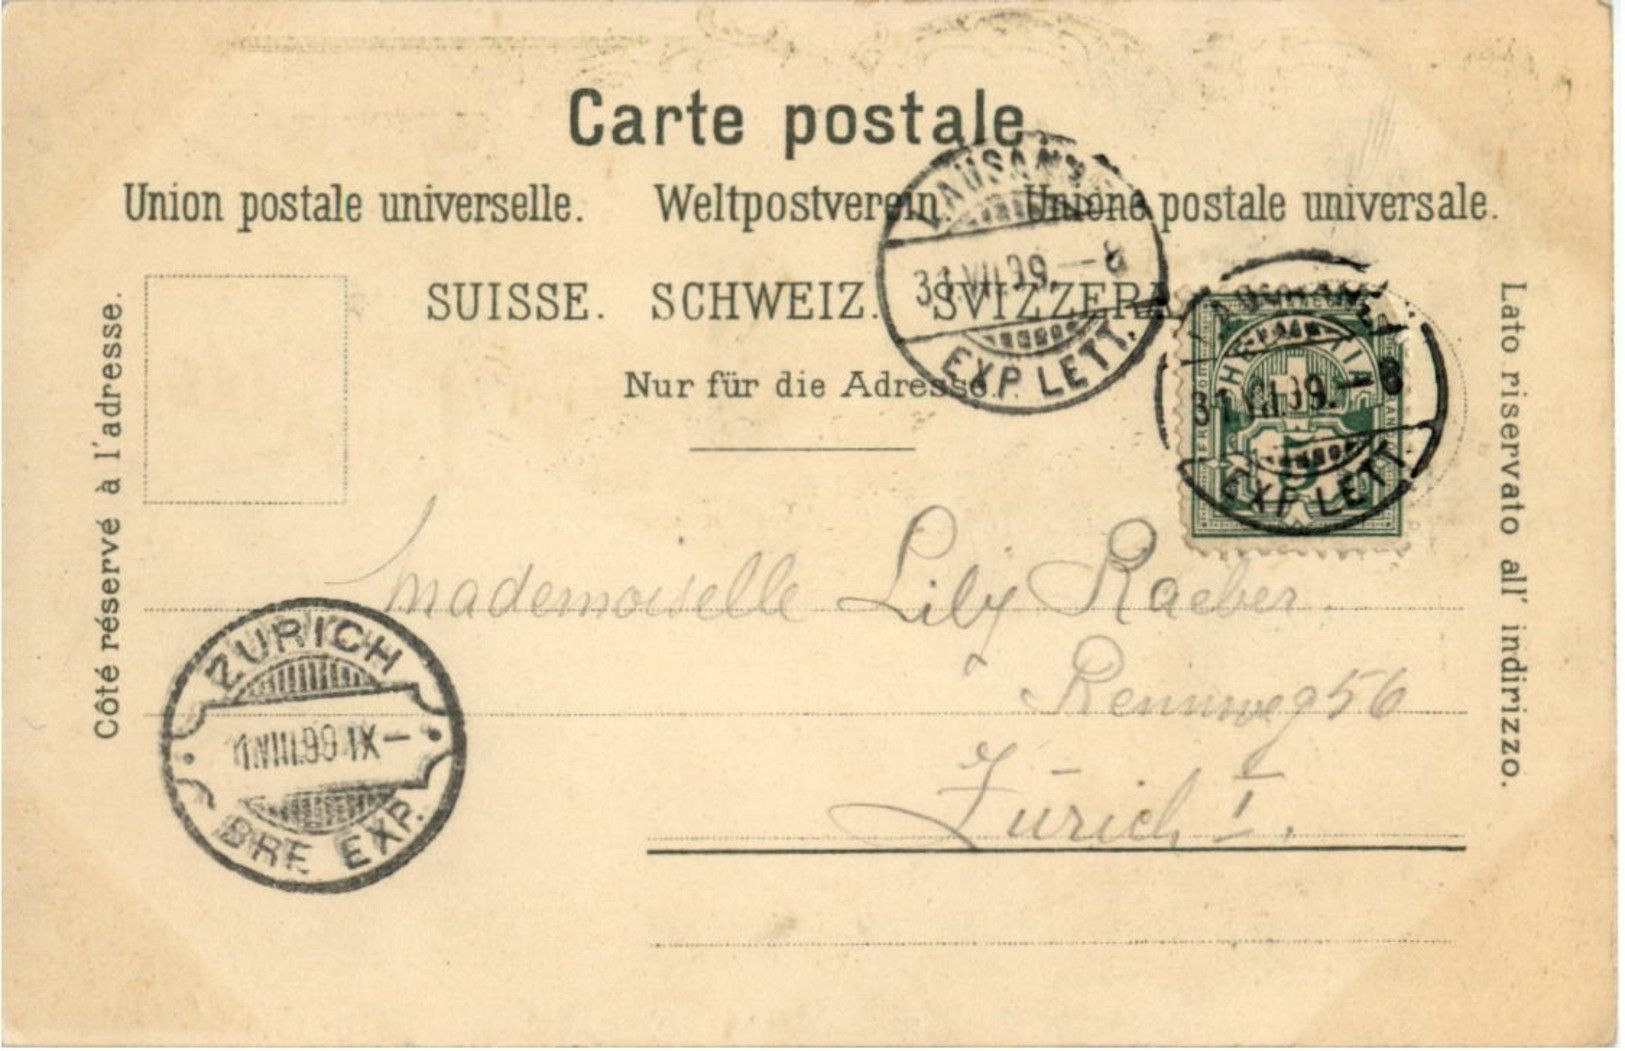 Carte postale
Union postale universelle. Weltpostverein. Unione postale universale.
SUISSE. SCHWEIZ. SVIZZERA
Nur für die Adresse.
Côté réservé à l'adresse.
Lato riservato all' indirizzo.
LAUSANNE
31.VII.99.–8
EXP. LETT.
LAUSANNE
HELVETIA
31.VII.99.–8
EXP. LETT.
Mademoiselle Lily Raeber.
Rennweg 56
Zürich I.
ZÜRICH
1.VIII.99.IX–
BRF. EXP.